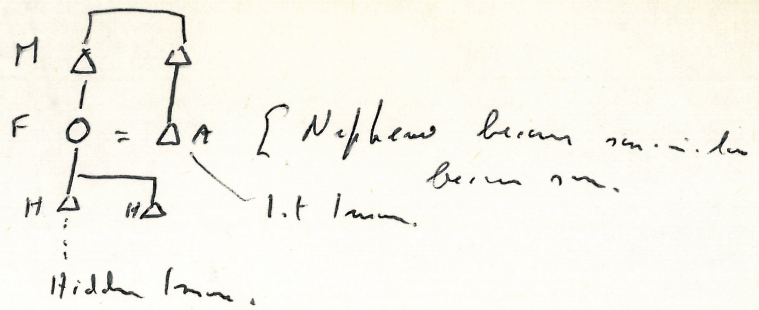 M
F = A [ Nephew becomes son-in-law
becomes son.
H H 1st Imam.
Hidden Imam.